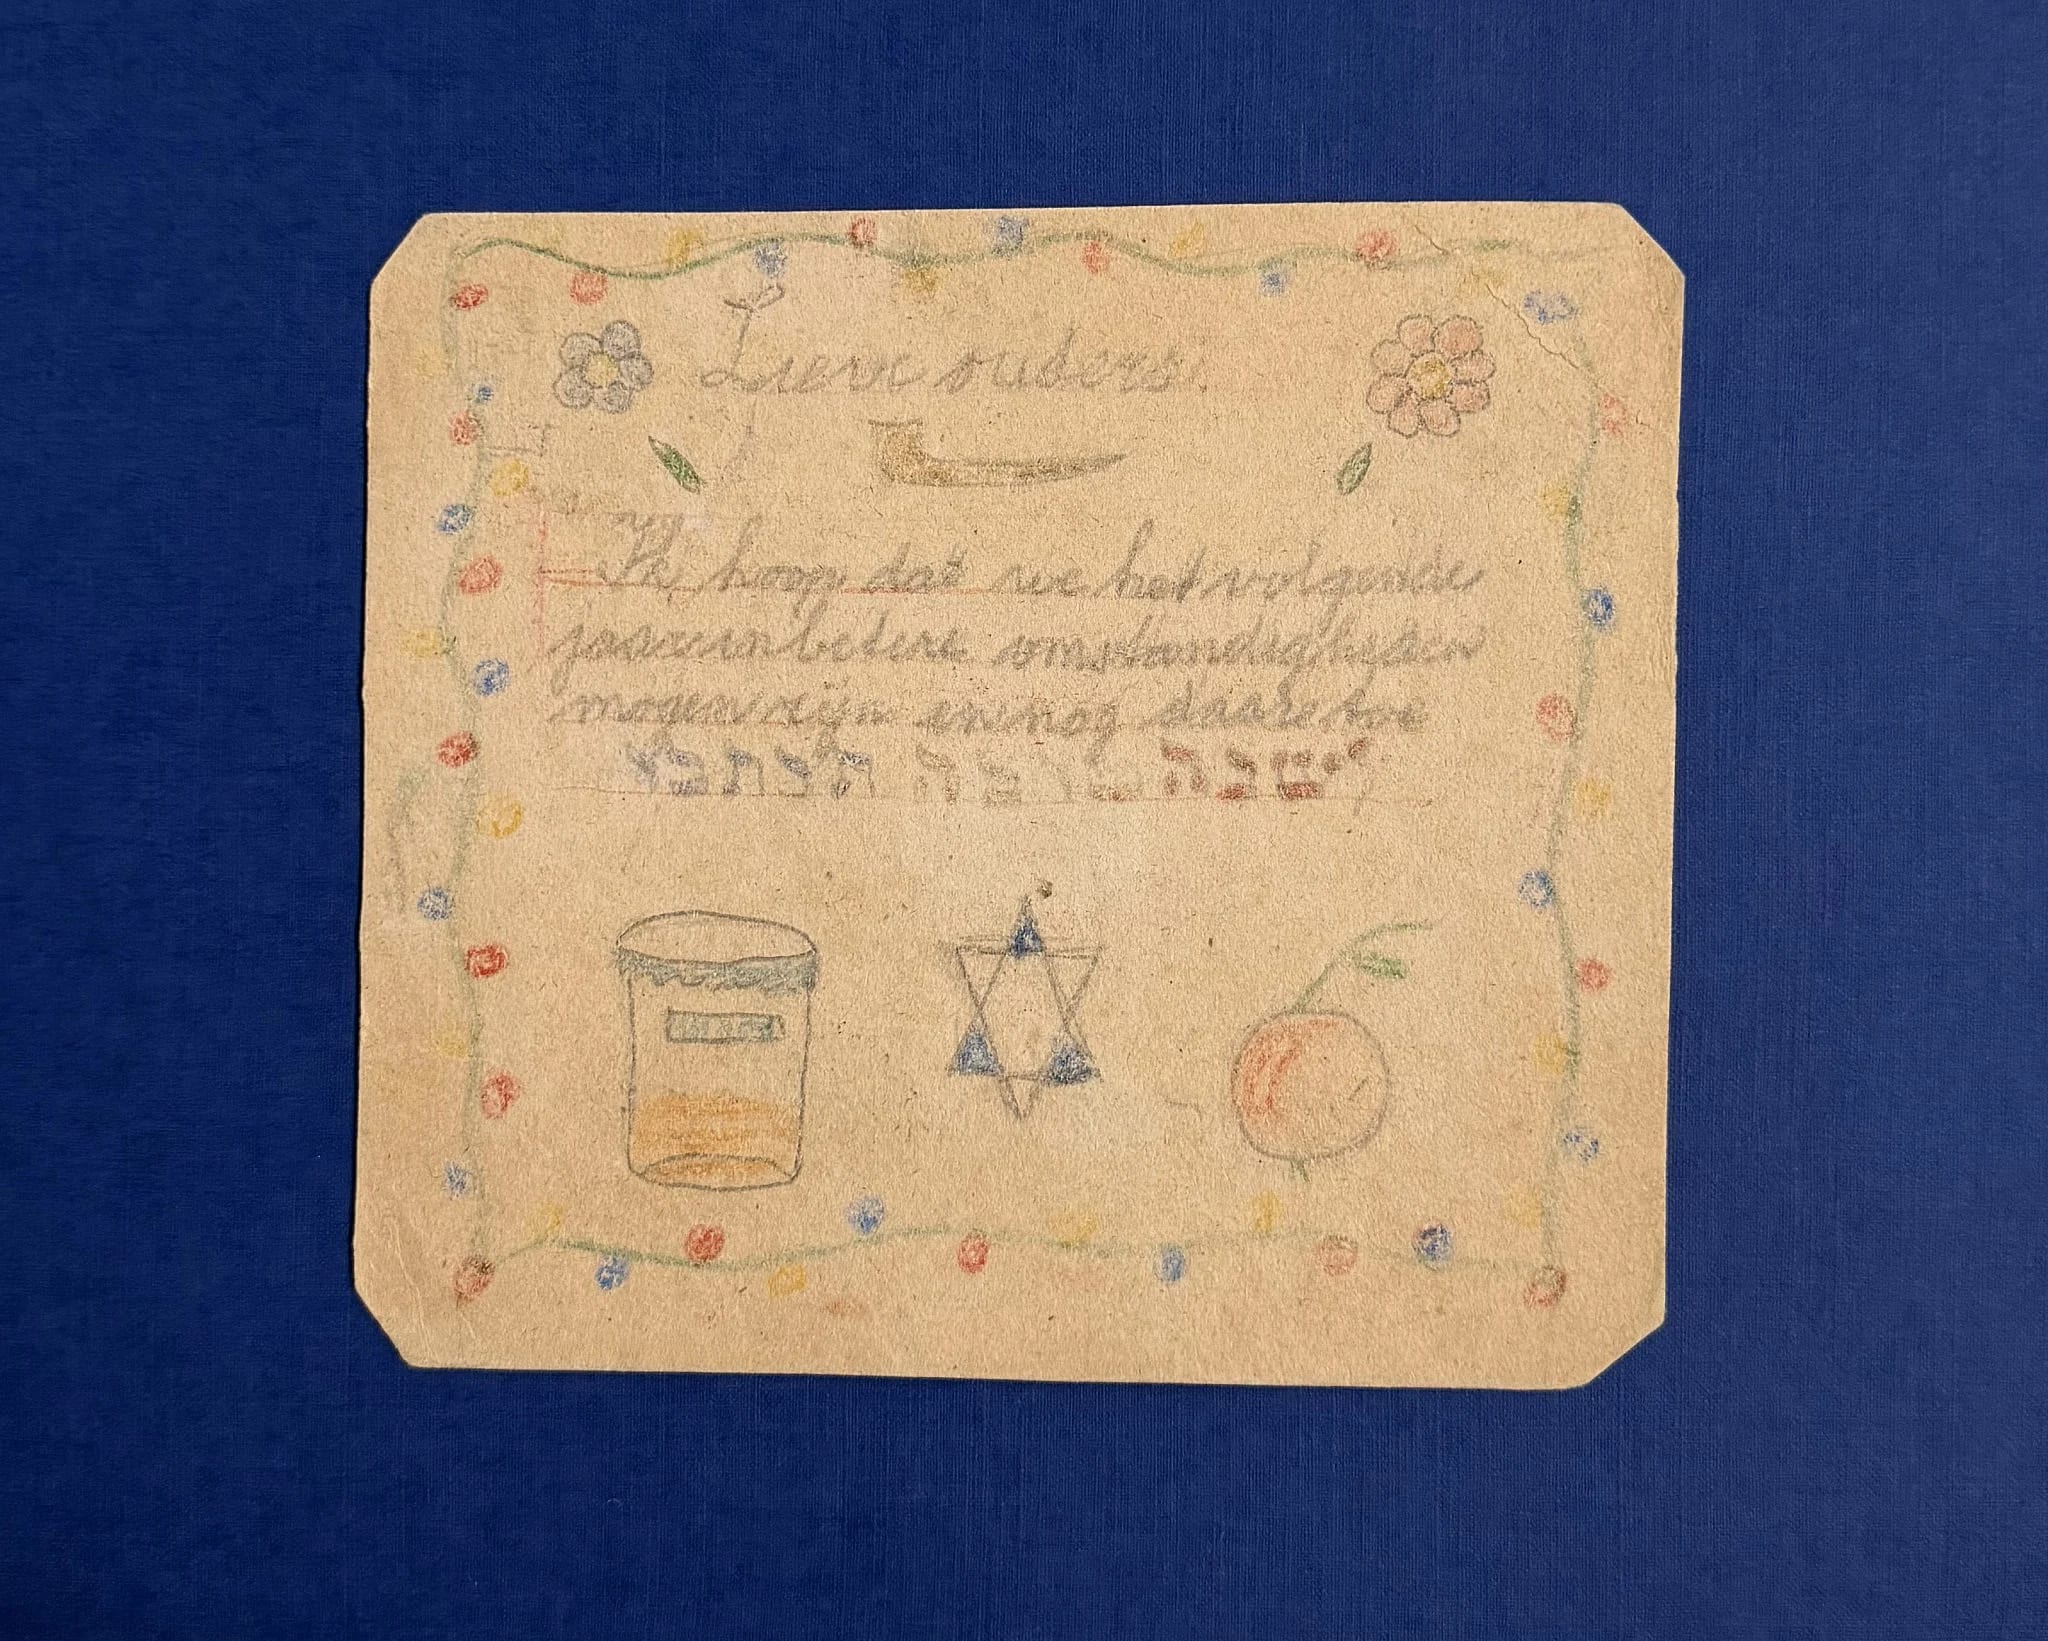 Lieve ouders.
Ik hoop dat we het volgende
jaar in betere omstandigheden
mogen zijn en nog daar toe
לשנה טובה תכתבו